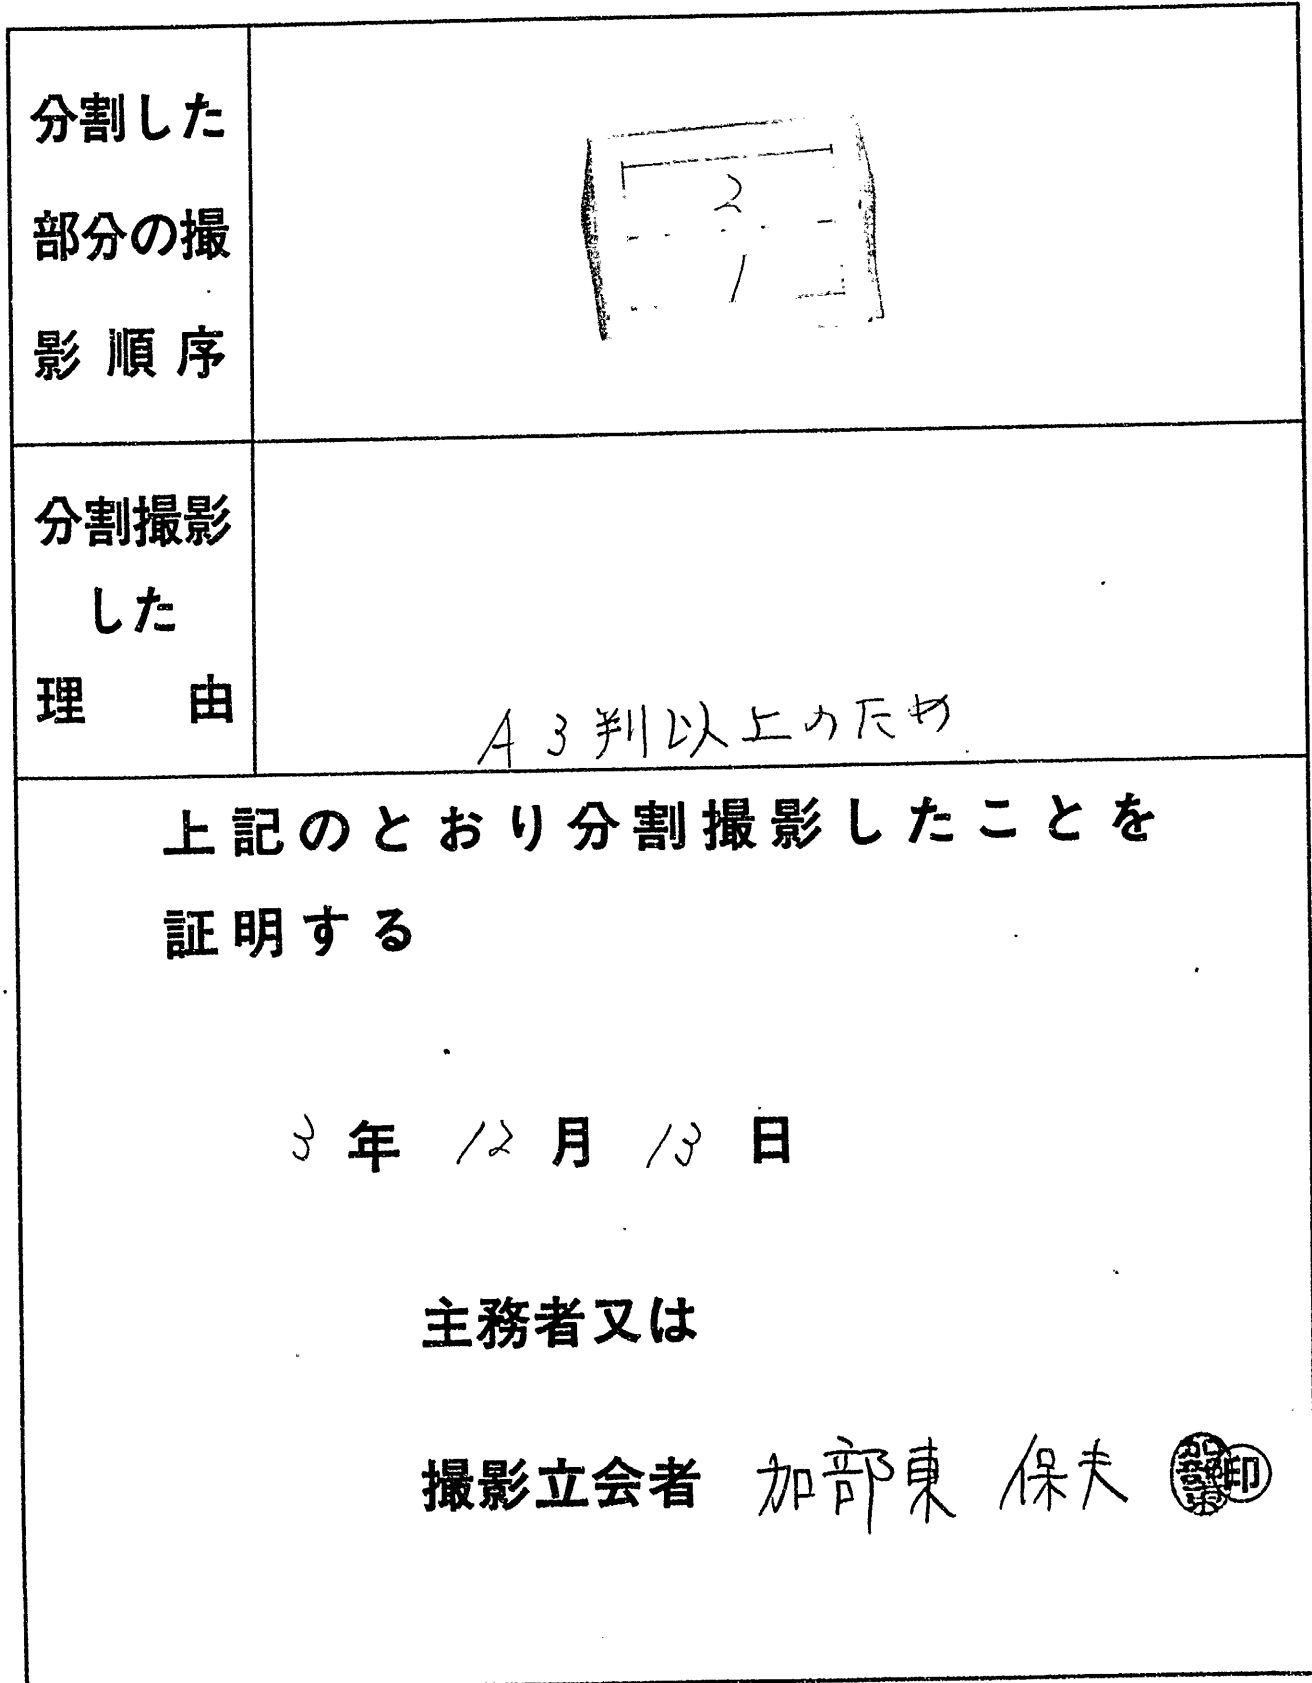 分割した
部分の撮
影順序
2
1
分割撮影
した
理由
A3判以上のため
上記のとおり分割撮影したことを
証明する
3年 12月 13日
主務者又は
撮影立会者 加部東 保夫 印
加部東